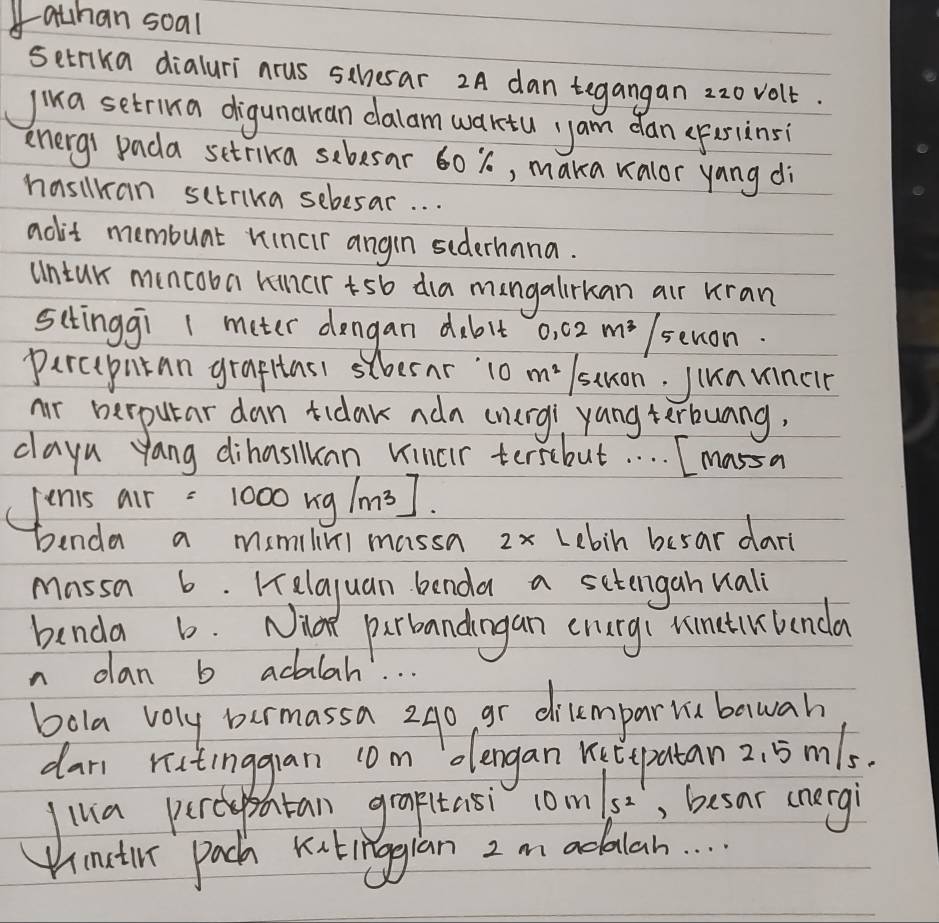 Latihan soal
Setrika dialuri arus sebesar 2A dan tegangan 220 volt.
Jika setrika digunakan dalam waktu 1 jam dan efesiensi
energi pada setrika sebesar 60 %, maka kalor yang di
hasilkan setrika sebesar ...
adit membuat kincir angin sederhana.
Untuk mencoba kincir tsb dia mengalirkan air kran
setinggi 1 meter dengan debit 0,02 m³/sekon.
Percepatan grafitasi sebesar 10 m²/sekon. Jika kincir
air berputar dan tidak ada energi yang terbuang,
daya yang dihasilkan kincir tersebut .... [massa
jenis air = 1000 kg/m³].
benda a memiliki massa 2x lebih besar dari
massa b. Kelajuan benda a setengah kali
benda b. Nilai perbandingan energi kinetik benda
a dan b adalah ...
bola voly bermassa 240 gr dilempar ke bawah
dari ketinggian 10 m dengan kecepatan 2,5 m/s.
Jika percepatan grafitasi 10 m/s², besar energi
kinetik pada ketinggian 2 m adalah ....